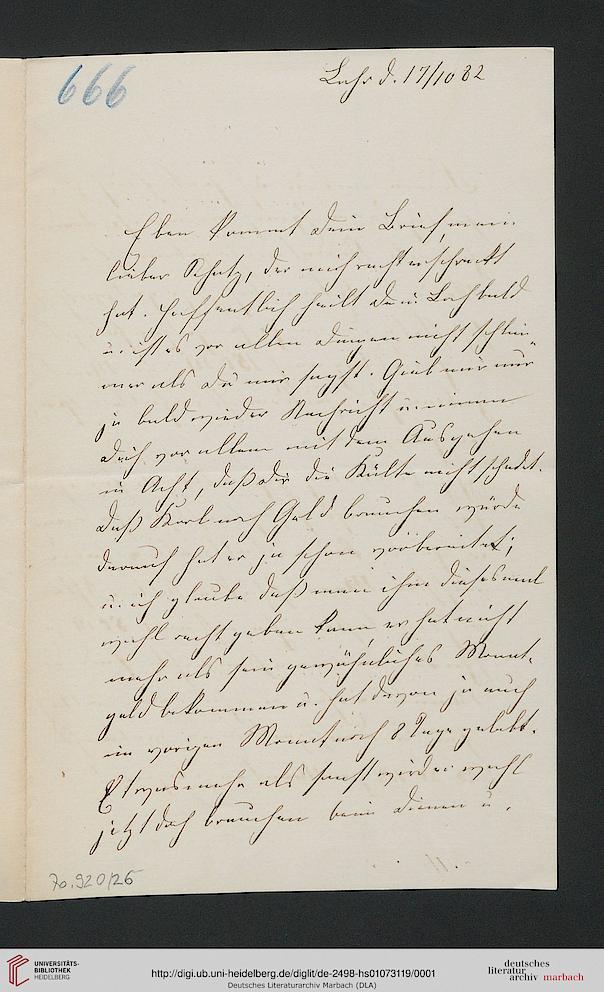 666
Lahr d. 17/10 82
Eben kommt dein Brief, mein
lieber Schatz, der mich recht erschreckt
hat. Hoffentlich heilt dein bald
u. ist es vor allen Dingen nicht schlim-
mer als du mir sagst. Gieb mir nur
ja bald wieder Nachricht u. nimm
dich vor allem mit dem Ausgehen
in Acht, daß dir die Kälte nicht schadet.
Daß Karl noch Geld brauchen würde
darauf hat er ja schon vorbereitet;
u. ich glaube daß man ihm diesesmal
wohl recht geben kann er hat nicht
mehr als sein gewöhnliches Monat-
geld bekommen u. hat davon ja auch
im vorigen Monat noch 8 Tage gelebt.
Etwas mehr als sonst wird er wohl
jetzt doch brauchen beim Dienen u.
70.920/26
UNIVERSITÄTS-
BIBLIOTHEK
HEIDELBERG
http://digi.ub.uni-heidelberg.de/diglit/de-2498-hs01073119/0001
Deutsches Literaturarchiv Marbach (DLA)
deutsches
literatur
archiv marbach